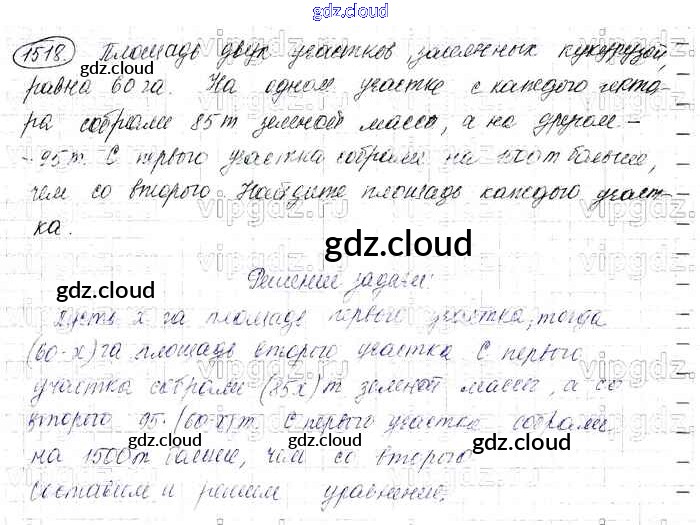 gdz.cloud
1518. Площадь двух участков, засеянных кукурузой,
равна 60 га. На одном участке с каждого гекта-
ра собрали 85 т зеленой массы, а на другом -
- 95 т. С первого участка собрали на т больше,
чем со второго. Найдите площадь каждого участ-
ка.
Решение задачи:
Пусть x га площадь первого участка, тогда
(60-x) га площадь второго участка. С первого
участка собрали (85x) т зеленой массы, а со
второго 95·(60-x) т. С первого участка собрали
на 1500т больше, чем со второго
Составим и решим уравнение.
gdz.cloud
gdz.cloud
gdz.cloud
gdz.cloud
gdz.cloud
gdz.cloud
gdz.cloud
gdz.cloud
gdz.cloud
vipgdz.ru